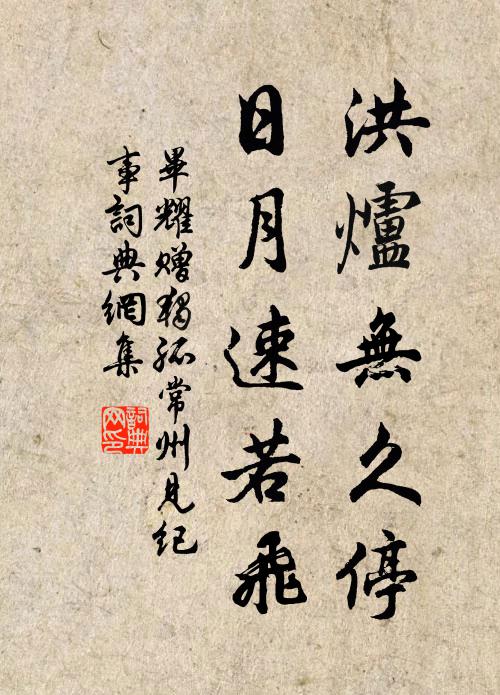 洪爐無久停
日月速若飛
畢耀贈獨孤常州見紀
事詞典網集
詞典
网印